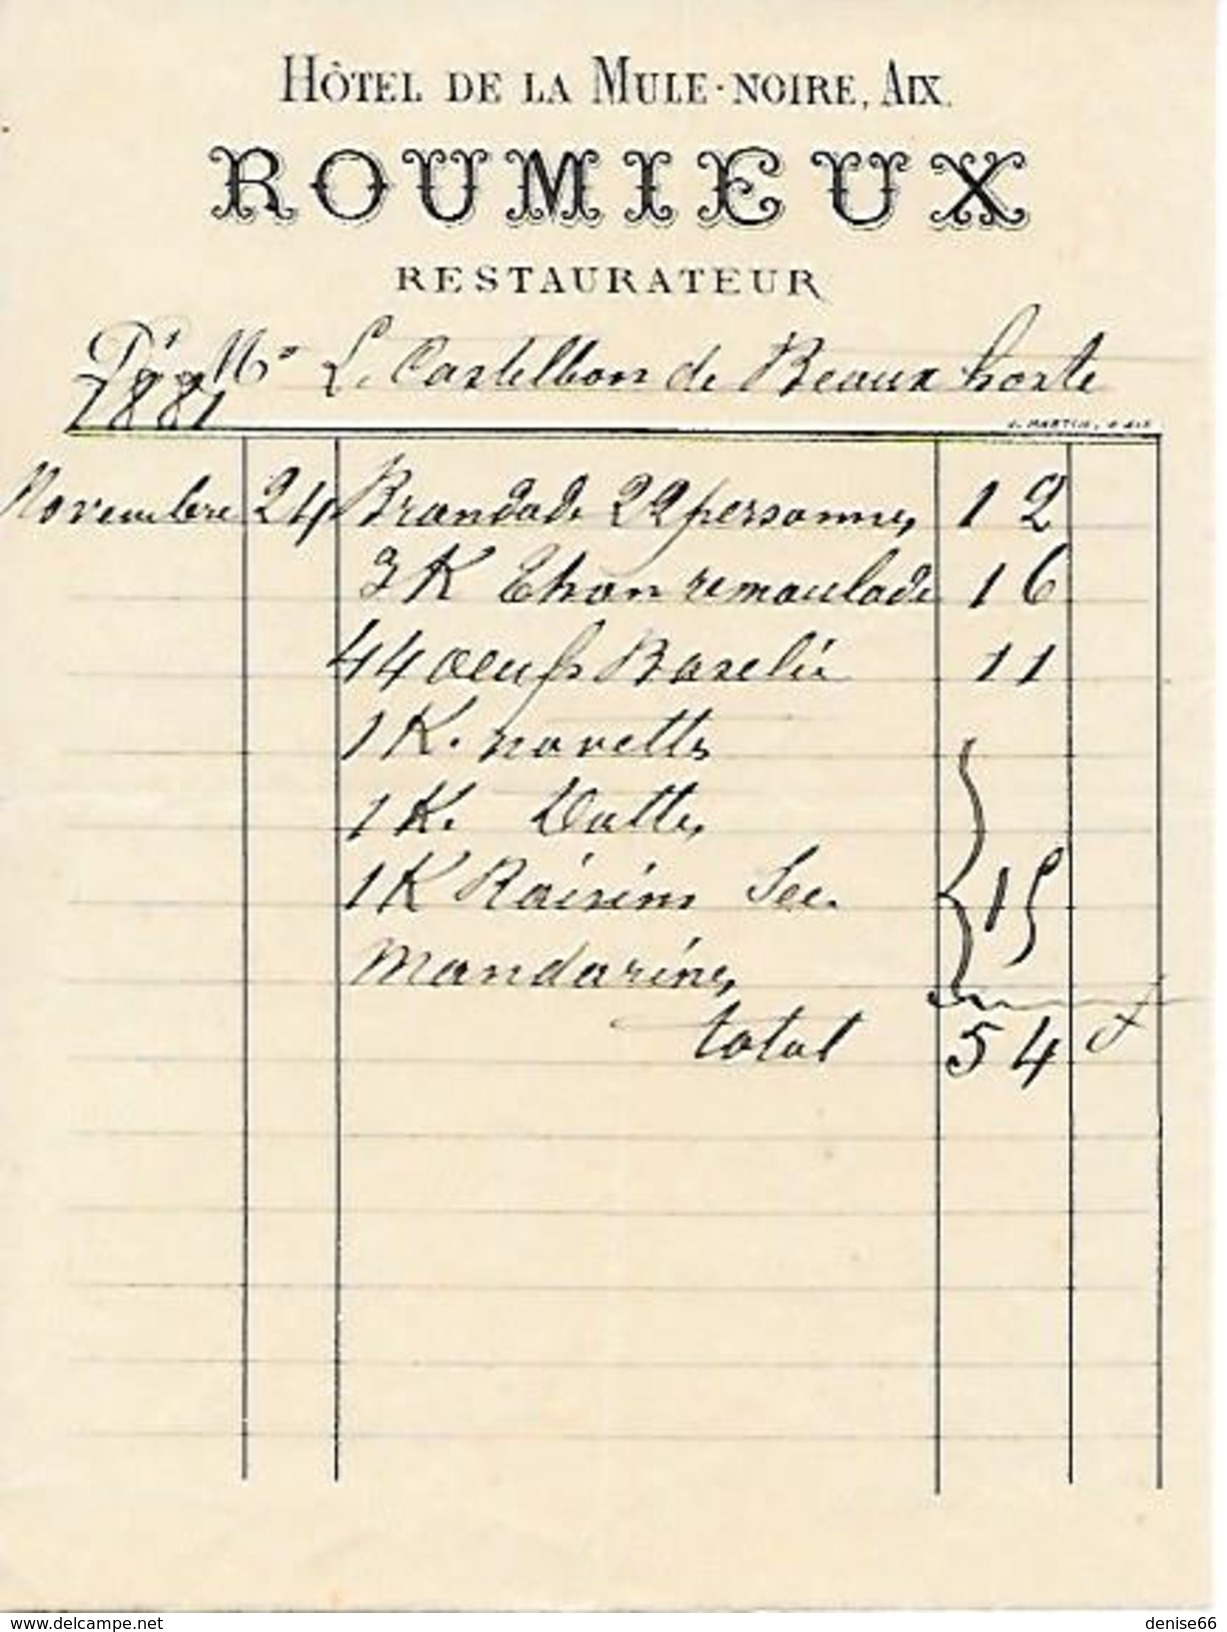 HÔTEL DE LA MULE-NOIRE, AIX.
ROUMIEUX
RESTAURATEUR
Dt Mr L. Castelbon de Beaux hoste
1881
J. MARTIN, A AIX
Novembre 24 Brandade 22 personnes 12
3 K Thon remoulade 16
44 oeufs 11
1 K. navetts
1 K. Dattes
1 K Raisins Sec. 15
Mandarines
total 54 f
denise66
www.delcampe.net